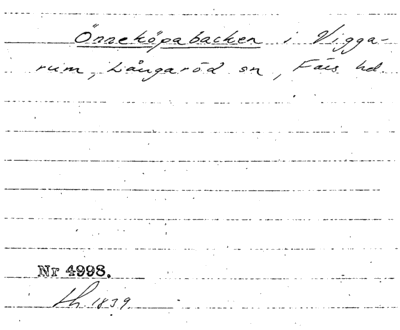 Önneköpabacken i Vigga-
rum, Långaröd sn, Färs hd.
Nr 4998.
1839.